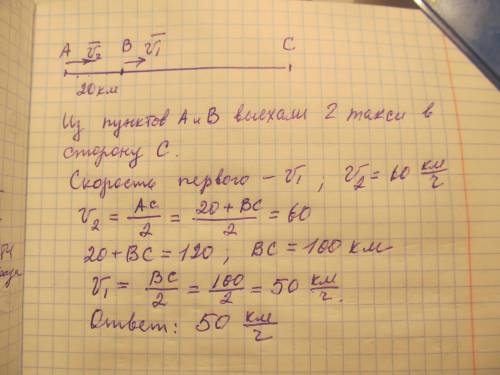 A V̅₂ B V̅₁ C
20км
Из пунктов А и В выехали 2 такси в
сторону С.
Скорость первого - V₁ ; V₂ = 60 км/ч
V₂ = AC/2 = (20 + BC)/2 = 60
20 + BC = 120 ; BC = 100 км
V₁ = BC/2 = 100/2 = 50 км/ч.
Ответ: 50 км/ч